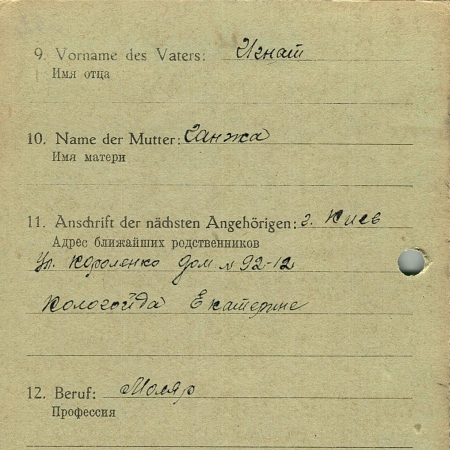 9. Vorname des Vaters: Игнат
Имя отца
10. Name der Mutter: Ганжа
Имя матери
11. Anschrift der nächsten Angehörigen: г. Киев
Адрес ближайших родственников
Ул. Короленко дом № 92-12
Кологойда Екатерине
12. Beruf: Моляр
Профессия